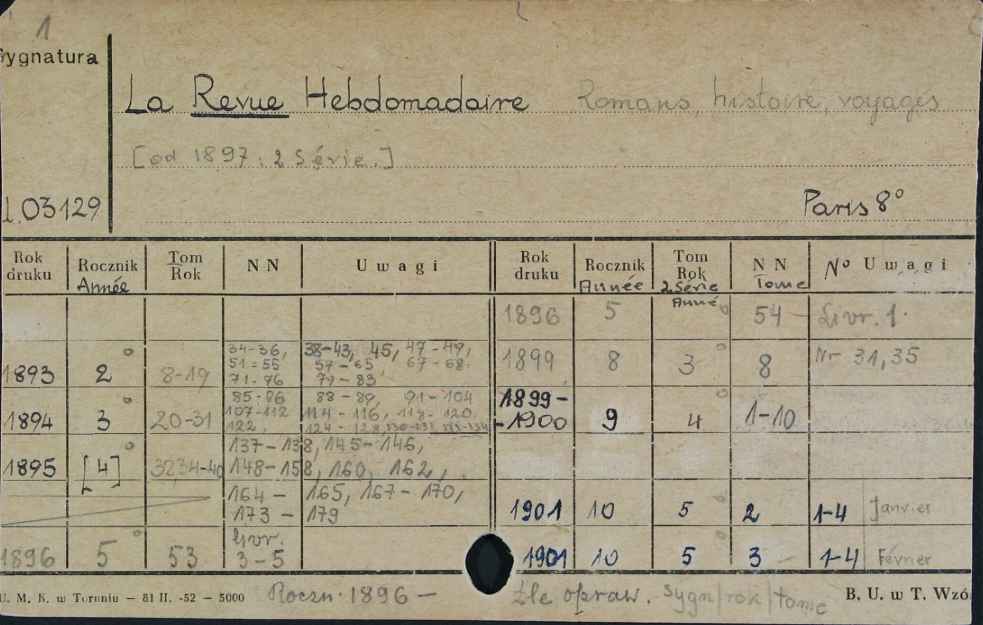 1
Sygnatura
La Revue Hebdomadaire Romans, histoire, voyages
[od 1897: 2 Série.]
03129
Paris 8°
Rok druku Rocznik Année Tom Rok N N Uwagi
Rok druku Rocznik Année Tom Rok 2 Série Année N N Tome N° Uwagi
1896 5 54 Livr. 1.
1893 2° 8-19 34-36, 38-43, 45, 47-49,
51-55 57-65 67-68
71-76 79-83
1899 8 3° 8 Nr 31, 35
1894 3° 20-31 85-86 88-89, 91-104
107-112 114-116, 118-120
122, 124-128,
1899-
-1900 9 4° 1-10
1895 [4]° 137-138, 145-146,
148-158, 160, 162,
164-165, 167-170,
173-179
1901 10 5° 2 1-4 Janvier
1896 5° 53 Livr.
3-5
1901 10 5° 3 1-4 Février
U. M. K. w Toruniu — 81 II. -52 — 5000 Roczn. 1896 — źle opraw. sygn/rok/tome B. U. w T. Wzó